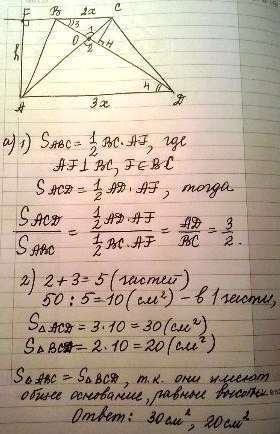 F B 2x C
3
O 1 4
2
h
4
A 3x D
а) 1) S_ABC = 1/2 BC · AF, где
AF ⊥ BC, F ∈ BC
S_ACD = 1/2 AD · AF, тогда
S_ACD / S_ABC = (1/2 AD · AF) / (1/2 BC · AF) = AD / BC = 3/2.
2) 2 + 3 = 5 (частей)
50 : 5 = 10 (см²) – в 1 части,
S△ACD = 3 · 10 = 30 (см²)
S△BCD = 2 · 10 = 20 (см²)
S△ABC = S△BCD, т.к. они имеют
общее основание, равные высоты.
Ответ: 30см², 20см²